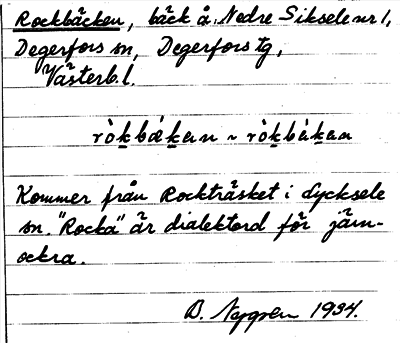 Rockbäcken, bäck å. Nedre Siksele nr 1,
Degerfors sn, Degerfors tg,
Västerb. l.
ròk̲bæk̲an ~ ròk̲bàk̲an
Kommer från Rockträsket i Lycksele
sn. "Rocka" är dialektord för järn-
ockra.
B. Nygren 1934.